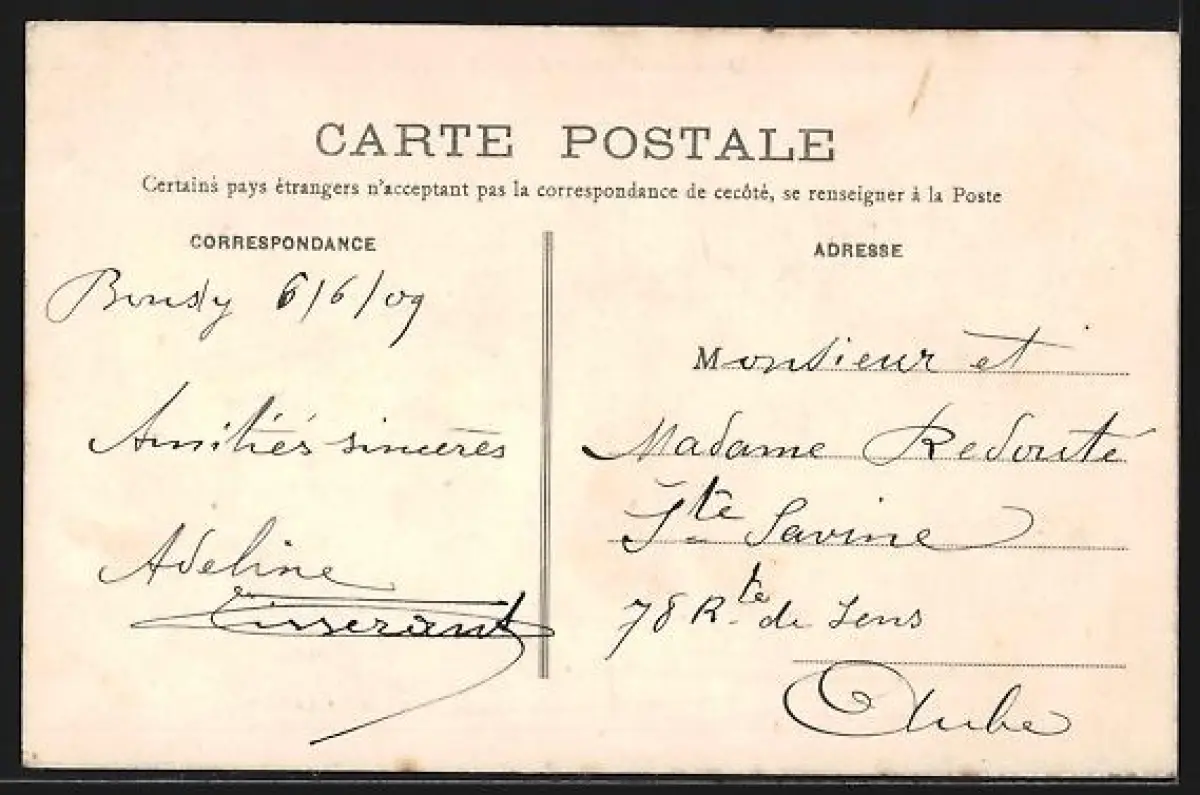 CARTE POSTALE
Certains pays étrangers n'acceptant pas la correspondance de cecôté, se renseigner à la Poste
CORRESPONDANCE
6/6/09
Amitiés sincères
Adeline
Tisserant
ADRESSE
Monsieur et
Madame Redouté
Ste Savine
78 Rte de Sens
Aube